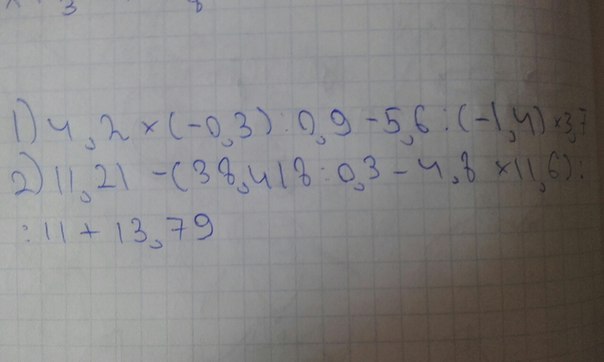 3 8
1) 4,2 × (-0,3) : 0,9 - 5,6 : (-1,4) × 3,7
2) 11,21 - (38,418 : 0,3 - 4,8 × 11,6) :
: 11 + 13,79